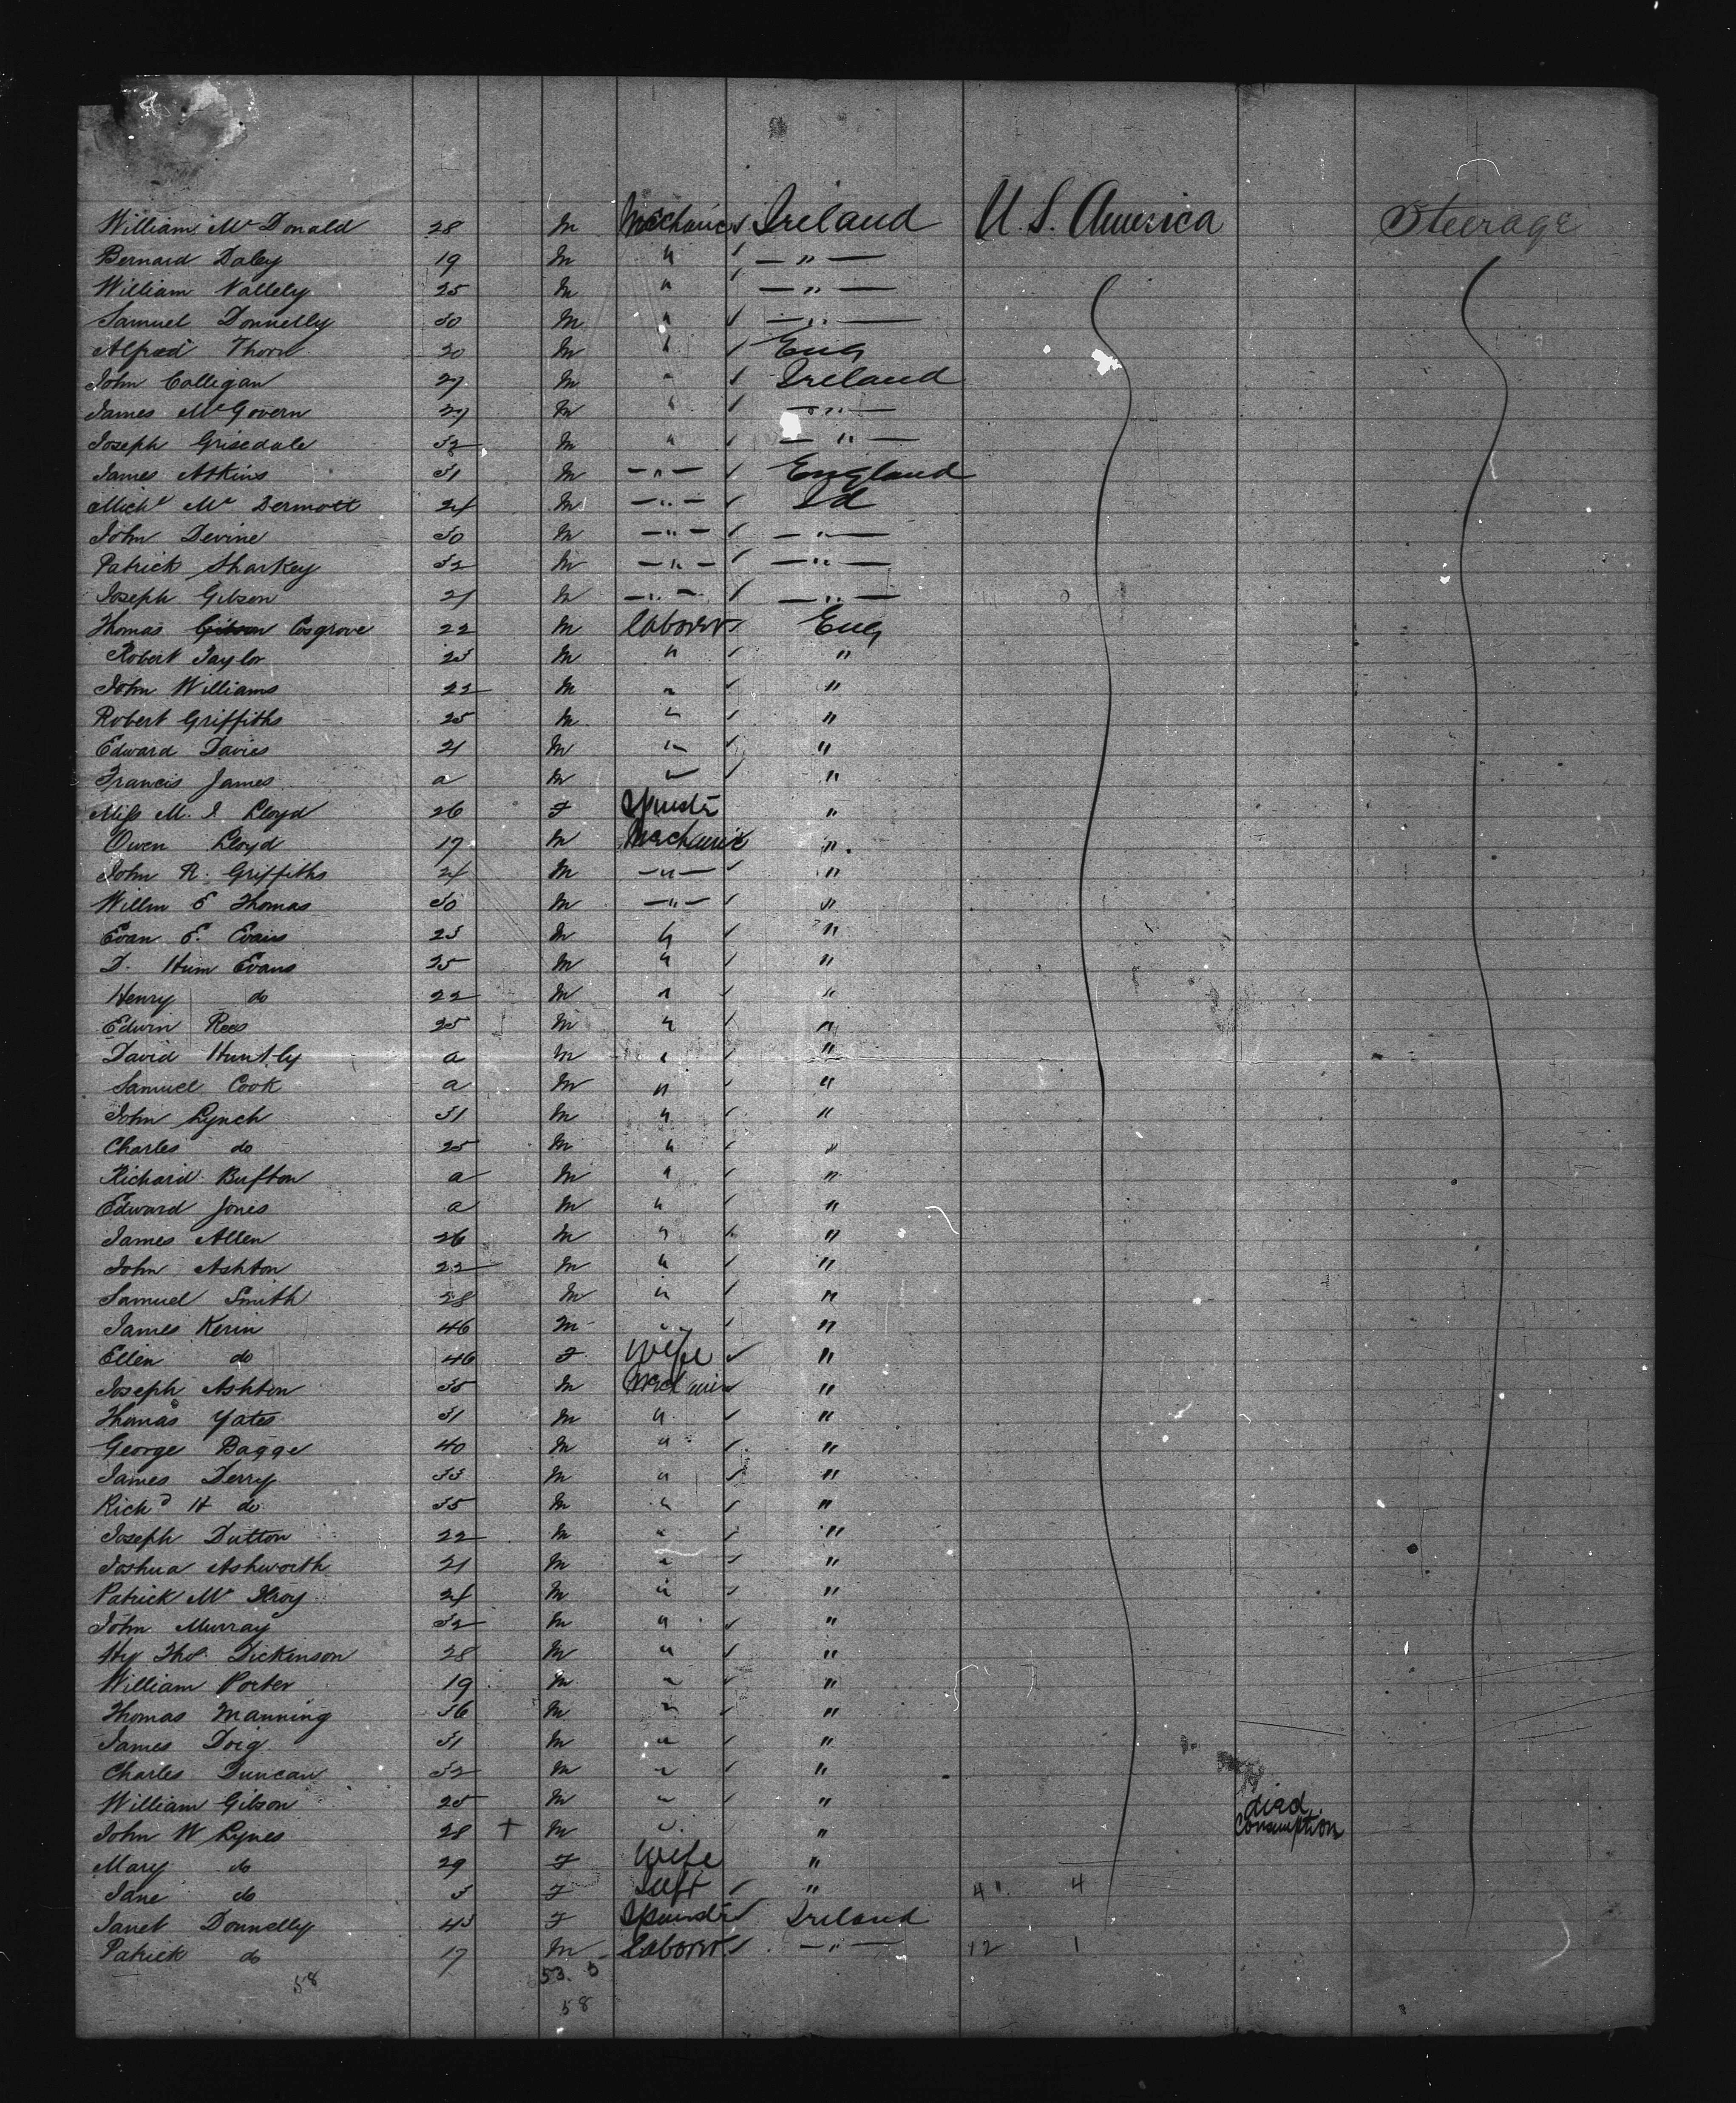 William Mc Donald 28 M Mechanic ✓ Ireland U.S. America Steerage
Bernard Daley 19 M " ✓ — " —
William Vallely 25 M " ✓ — " —
Samuel Donnelly 30 M " ✓ — " —
Alfred Thorn 20 M " ✓ Eng
John Colligan 27 M " ✓ Ireland
James McGovern 27 M " ✓ — " —
Joseph Grisedale 32 M " ✓ — " —
James Atkins 31 M — " — ✓ England
Michl Mc Dermott 24 M — " — ✓ Id
John Devine 30 M — " — ✓ — " —
Patrick Sharkey 32 M — " — ✓ — " —
Joseph Gibson 21 M — " — ✓ — " —
Thomas Gibson Cosgrove 22 M laborer ✓ Eng
Robert Taylor 23 M " ✓ "
John Williams 22 M " ✓ "
Robert Griffiths 25 M " ✓ "
Edward Davies 21 M " ✓ "
Francis James a M " ✓ "
Miss M. J. Lloyd 26 F Spinstr "
Owen Lloyd 17 M Mechanic "
John R. Griffiths 24 M — " — ✓ "
Willm E Thomas 30 M — " — ✓ "
Evan E. Evans 23 M " ✓ "
D. Hum Evans 25 M " ✓ "
Henry do 22 M " ✓ "
Edwin Rees 25 M " ✓ "
David Huntly a M " ✓ "
Samuel Cook a M " ✓ "
John Lynch 31 M " ✓ "
Charles do 25 M " ✓ "
Richard Bufton a M " ✓ "
Edward Jones a M " ✓ "
James Allen 26 M " ✓ "
John Ashton 22 M " ✓ "
Samuel Smith 28 M " ✓ "
James Kerin 46 M " ✓ "
Ellen do 46 F Wife ✓ "
Joseph Ashton 35 M Mechanic "
Thomas Yates 31 M " ✓ "
George Bagge 40 M " ✓ "
James Derry 33 M " ✓ "
Richd H do 35 M " ✓ "
Joseph Dutton 22 M " ✓ "
Joshua Ashworth 21 M " ✓ "
Patrick Mc Ilroy 24 M " ✓ "
John Murray 32 M " ✓ "
Hy Thos. Dickinson 28 M " ✓ "
William Porter 19 M " ✓ "
Thomas Manning 36 M " ✓ "
James Doig 31 M " ✓ "
Charles Duncan 32 M " ✓ "
William Gibson 25 M " ✓ " died
John W Lynes 28 + M " " Consumption
Mary do 29 F Wife "
Jane do 3 F ✓ " 4 " 4
Janet Donnelly 43 F Spinstr ✓ Ireland
Patrick do 17 M laborer ✓ — " — 12 1
58 53. 5
58